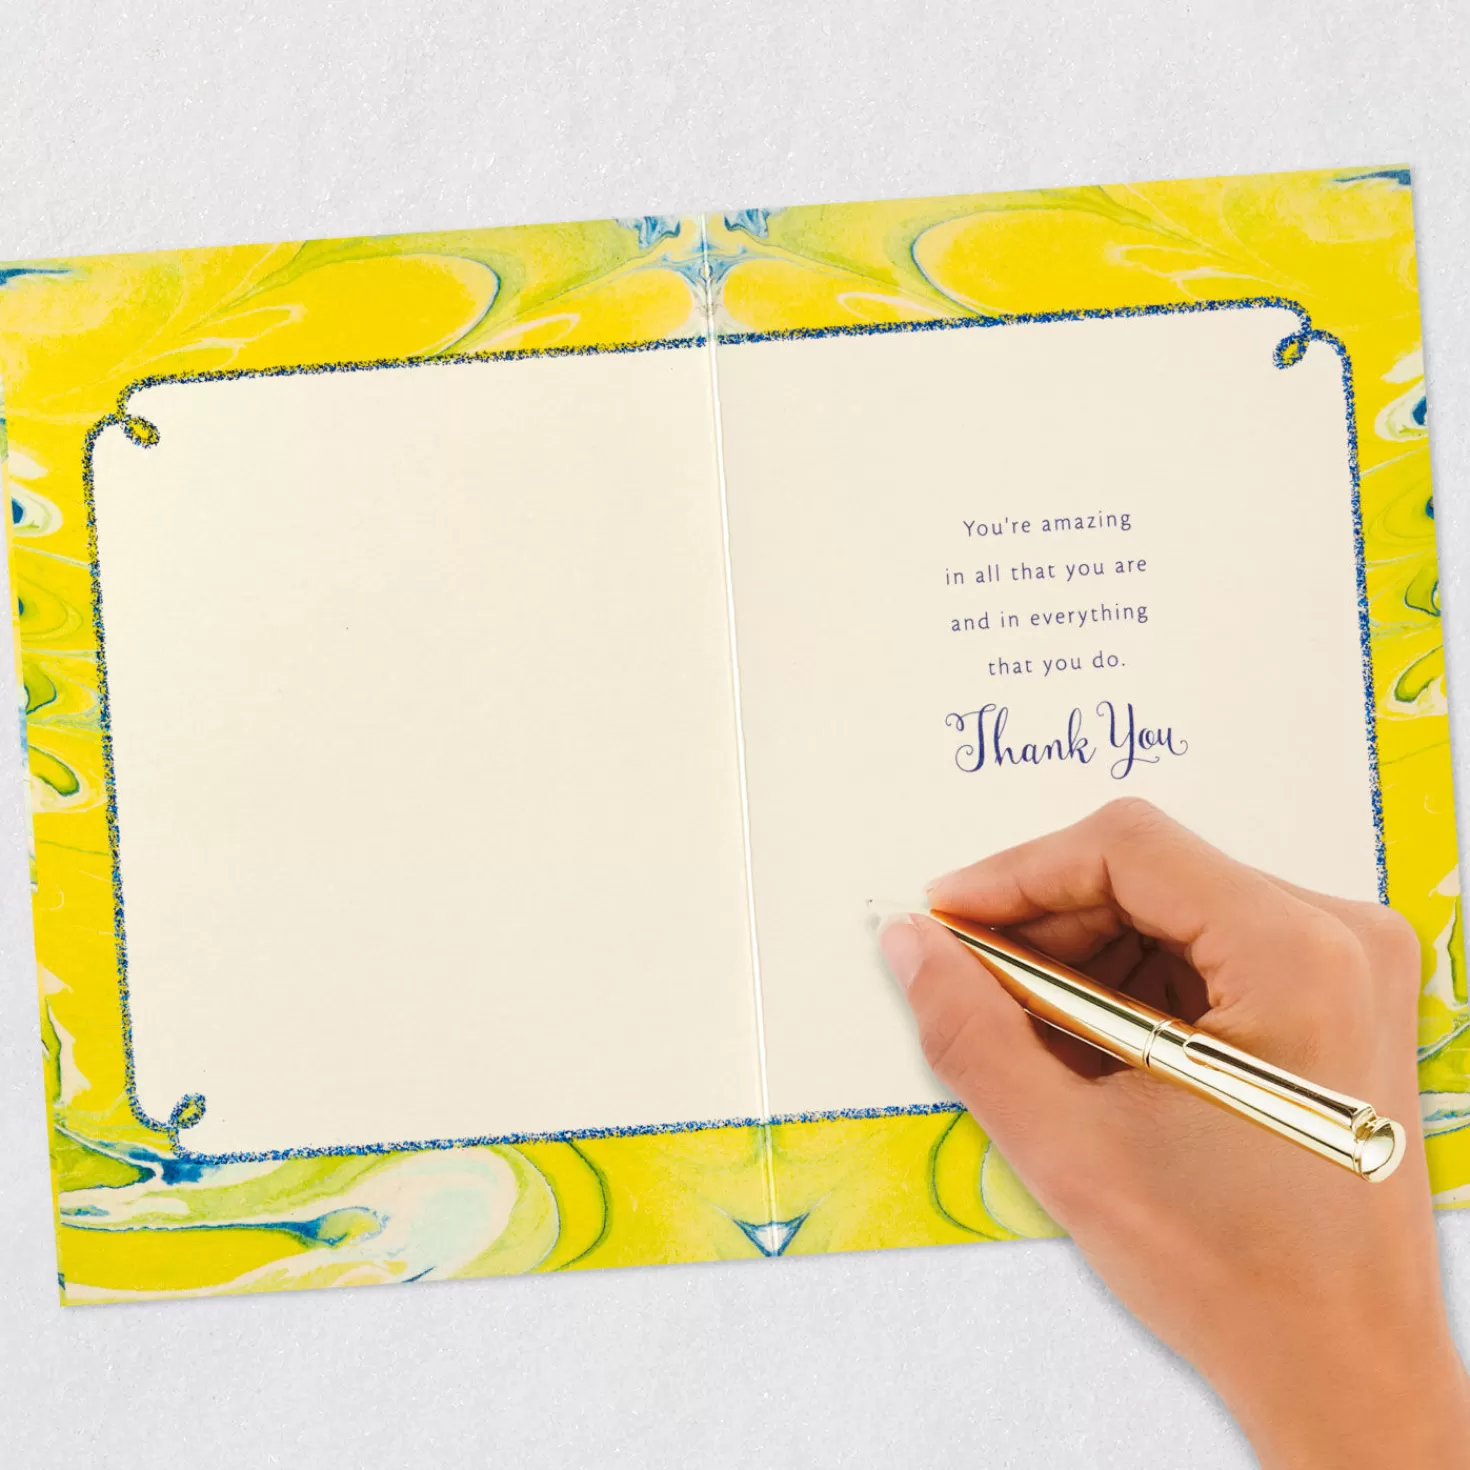 You're amazing
in all that you are
and in everything
that you do.
Thank You